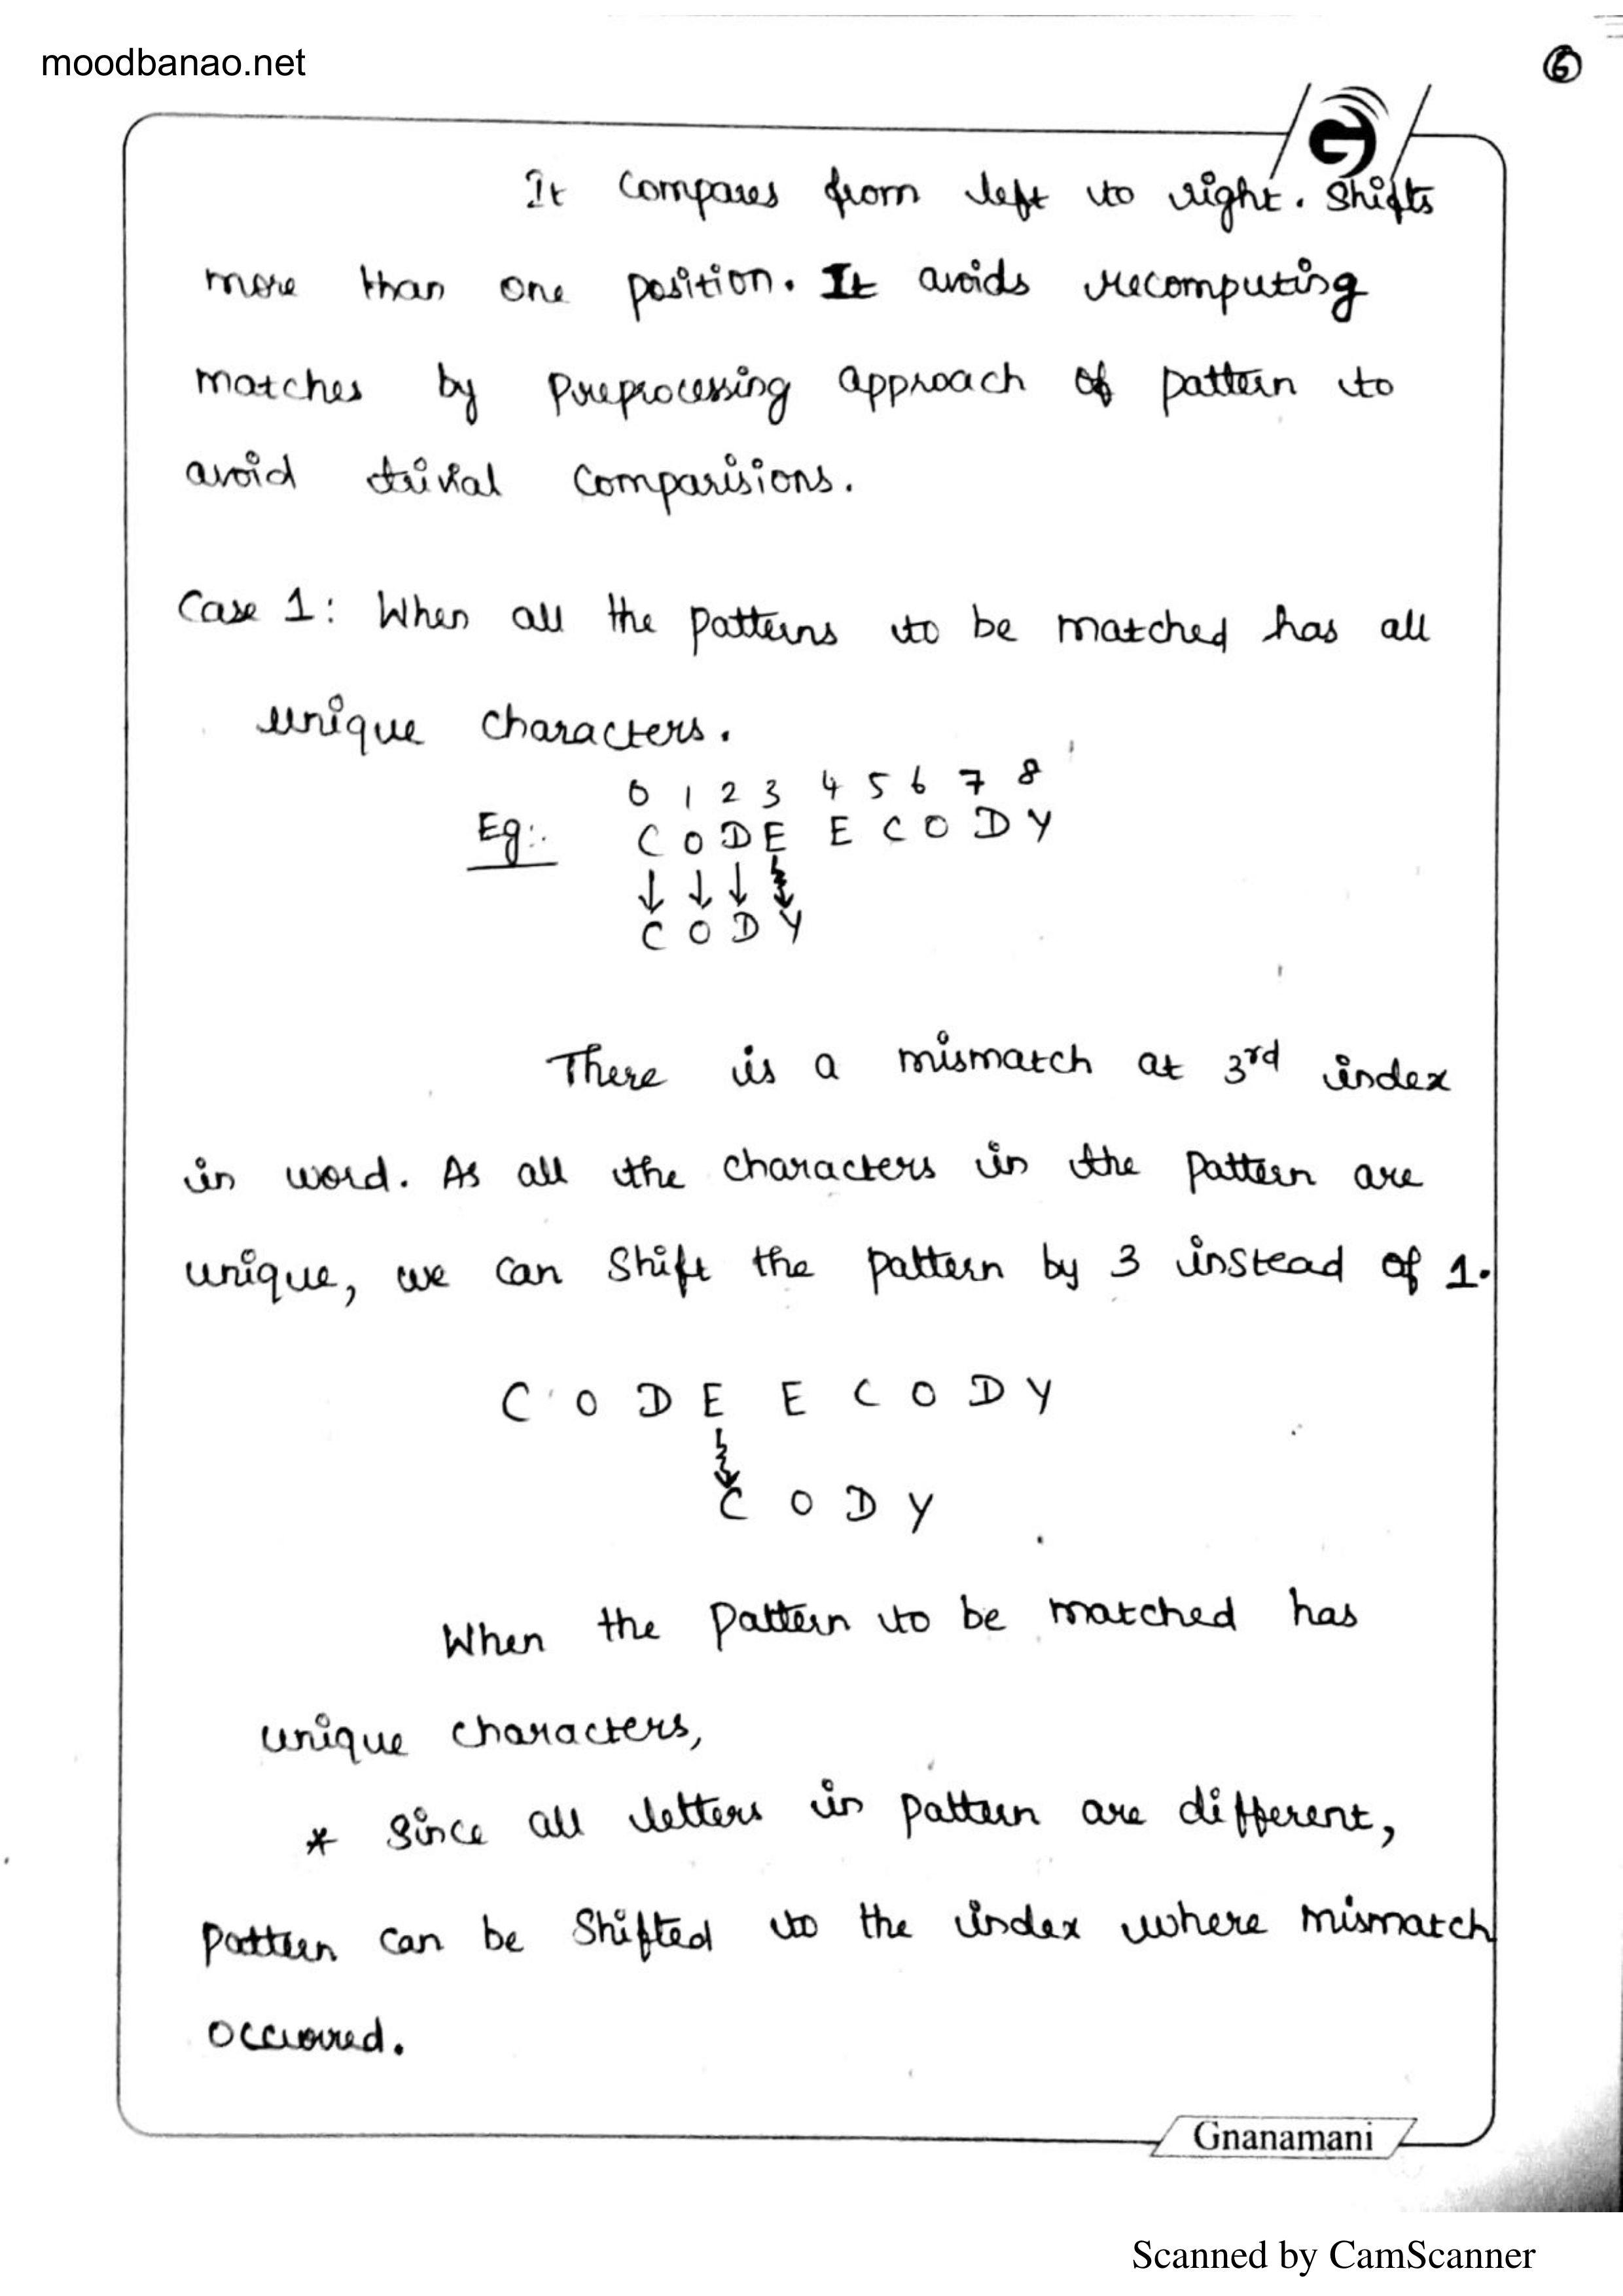 moodbanao.net
6
It compares from left to right. Shifts
more than one position. It avoids recomputing
matches by preprocessing approach of pattern to
avoid trivial comparisions.
Case 1: When all the patterns to be matched has all
unique characters.
0 1 2 3 4 5 6 7 8
Eg:. C O D E E C O D Y
C O D Y
There is a mismatch at 3rd index
in word. As all the characters in the pattern are
unique, we can shift the pattern by 3 instead of 1.
C O D E E C O D Y
C O D Y
When the pattern to be matched has
unique characters,
* Since all letters in pattern are different,
pattern can be shifted to the index where mismatch
occured.
Gnanamani
Scanned by CamScanner